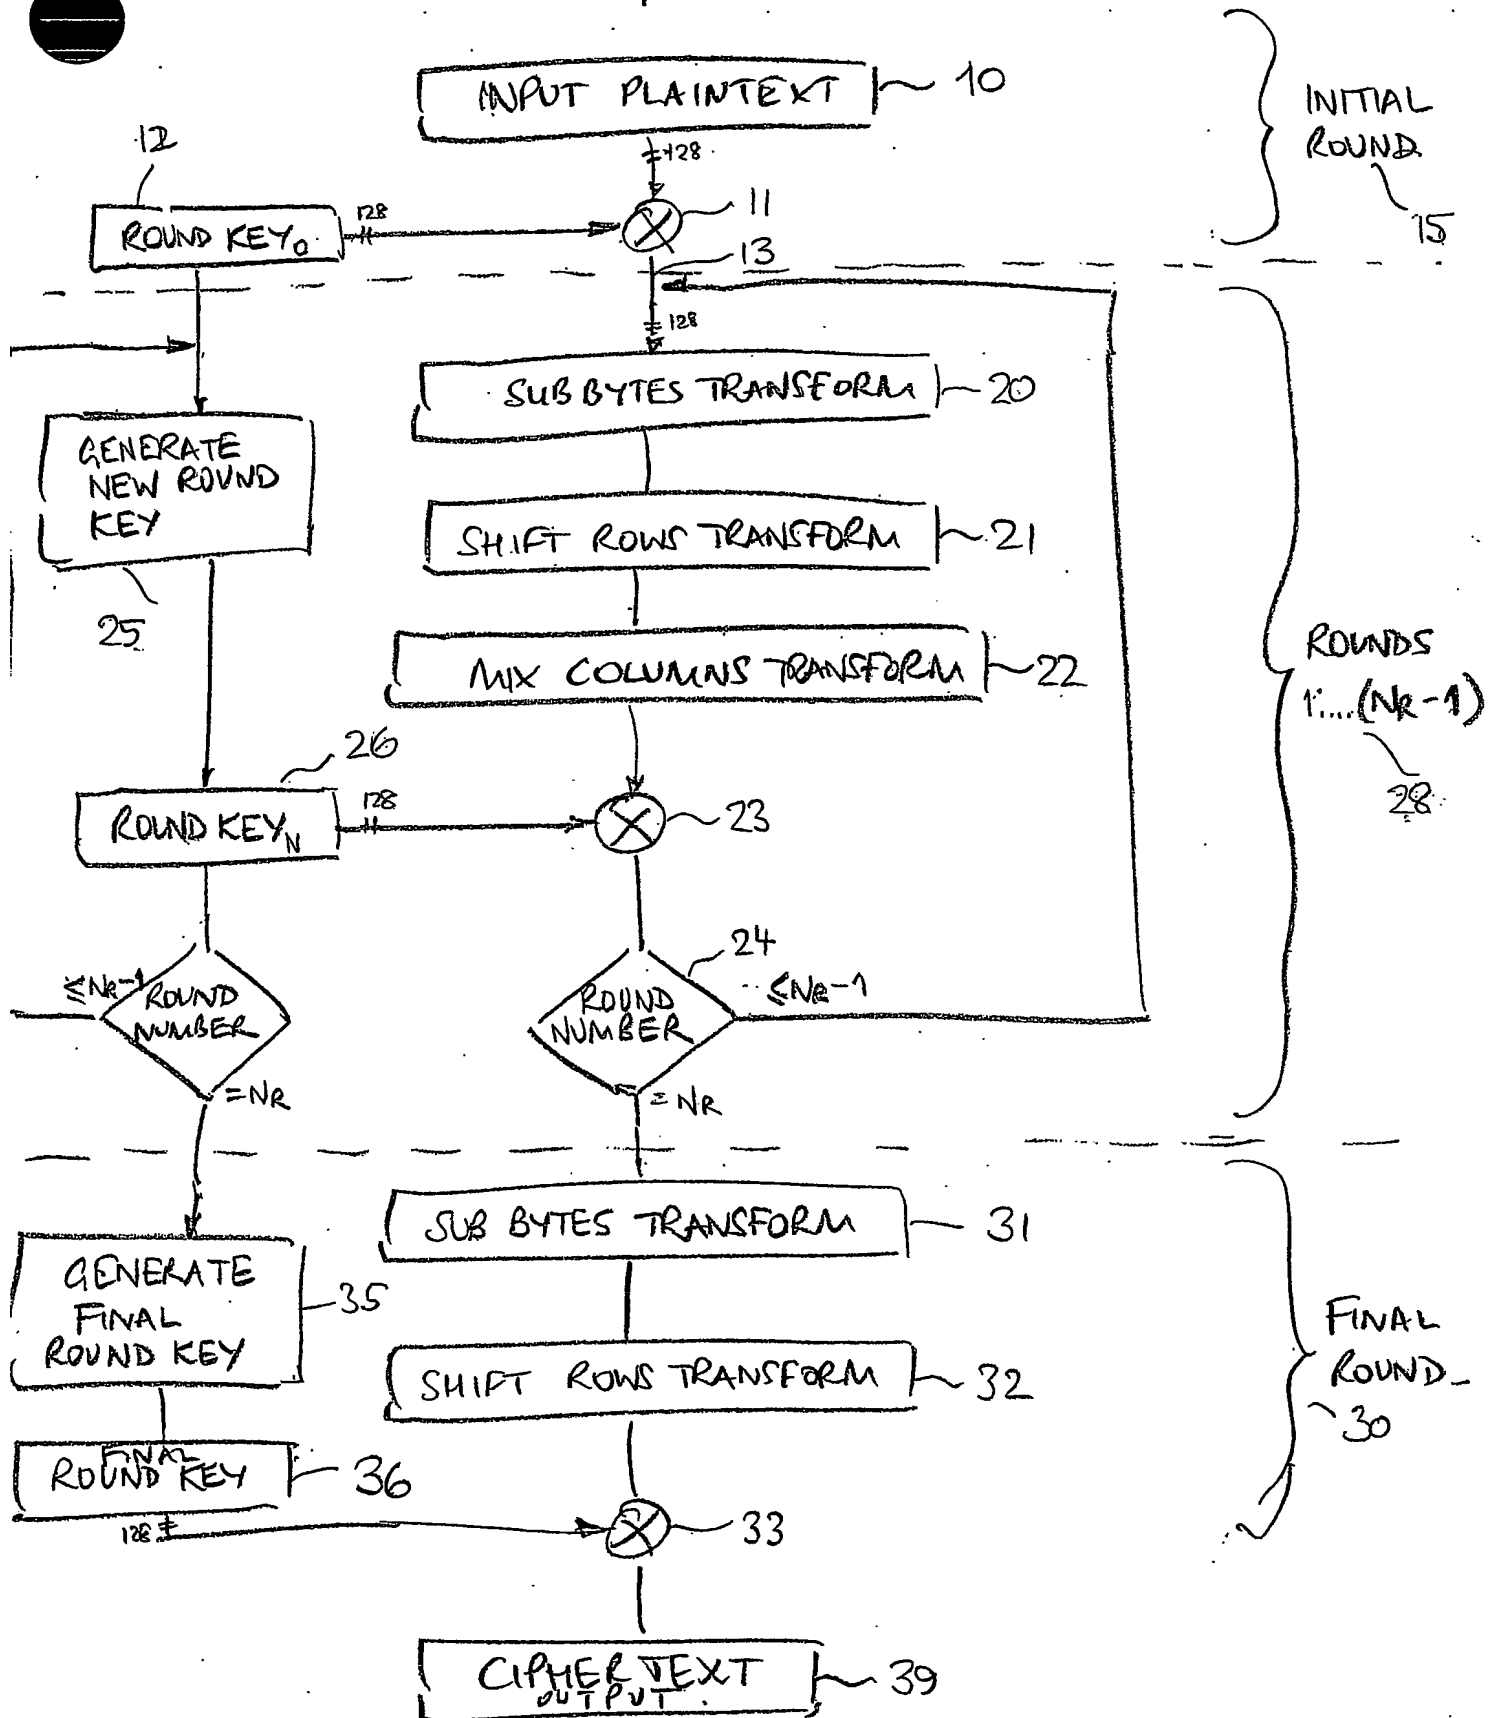 INPUT PLAINTEXT 10
INITIAL
ROUND
15
128
12
ROUND KEY0
128
11
13
128
SUB BYTES TRANSFORM 20
GENERATE
NEW ROUND
KEY
25
SHIFT ROWS TRANSFORM 21
MIX COLUMNS TRANSFORM 22
ROUNDS
1....(NR-1)
28
26
ROUND KEYN
128
23
24
≤NR-1
ROUND
NUMBER
=NR
ROUND
NUMBER
≤NR-1
=NR
SUB BYTES TRANSFORM 31
GENERATE
FINAL
ROUND KEY
35
SHIFT ROWS TRANSFORM 32
FINAL
ROUND
30
FINAL
ROUND KEY 36
128
33
CIPHER TEXT
OUTPUT
39